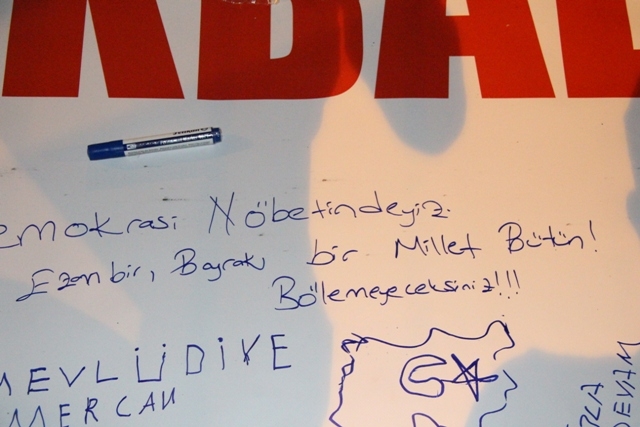 KBAL
emokrasi Nöbetindeyiz.
Ezan bir, Bayrak bir Millet Bütün!
Bölemeyeceksiniz!!!
MEVLÜDİYE
MERCAN
DEVAM